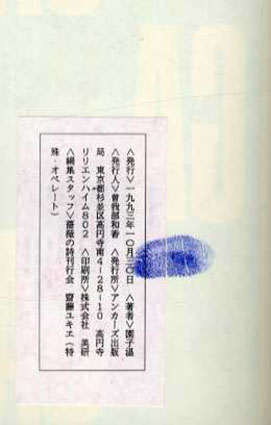 ＜発行＞一九九三年一〇月三〇日　＜著者＞園子温
＜発行人＞曽我部和善　＜発行所＞アンカーズ出版
局　東京都杉並区高円寺南4－28－10　高円寺
リリエンハイム802　＜印刷所＞株式会社　美研
＜編集スタッフ＞薔薇の詩刊行会　齋藤ユキエ（特
殊・オペレート）